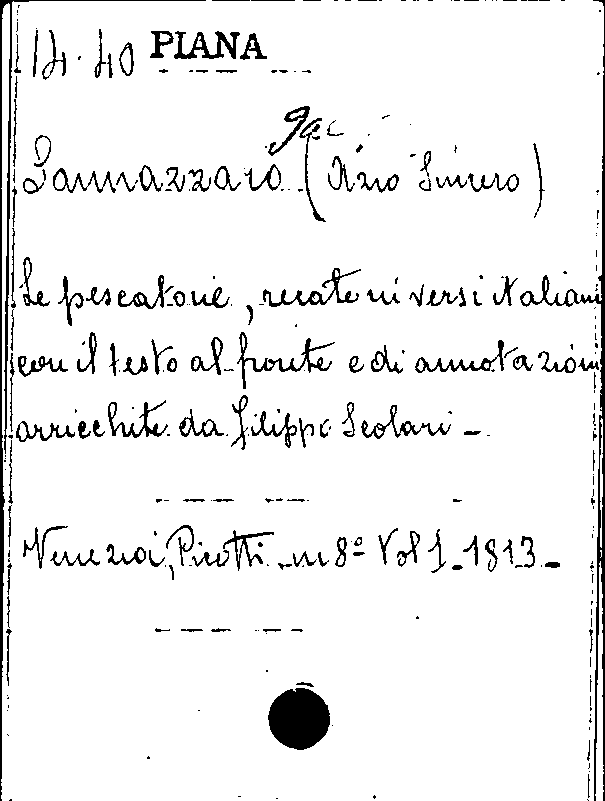 14.40 PIANA
Jac
Sannazzaro (Azio Sincero)
Le pescatorie, recate in versi italiani
con il testo al fronte e di annotazioni
arricchite da Filippo Scolari -
Venezia, Picotti. in 8º Vol 1 - 1813 -